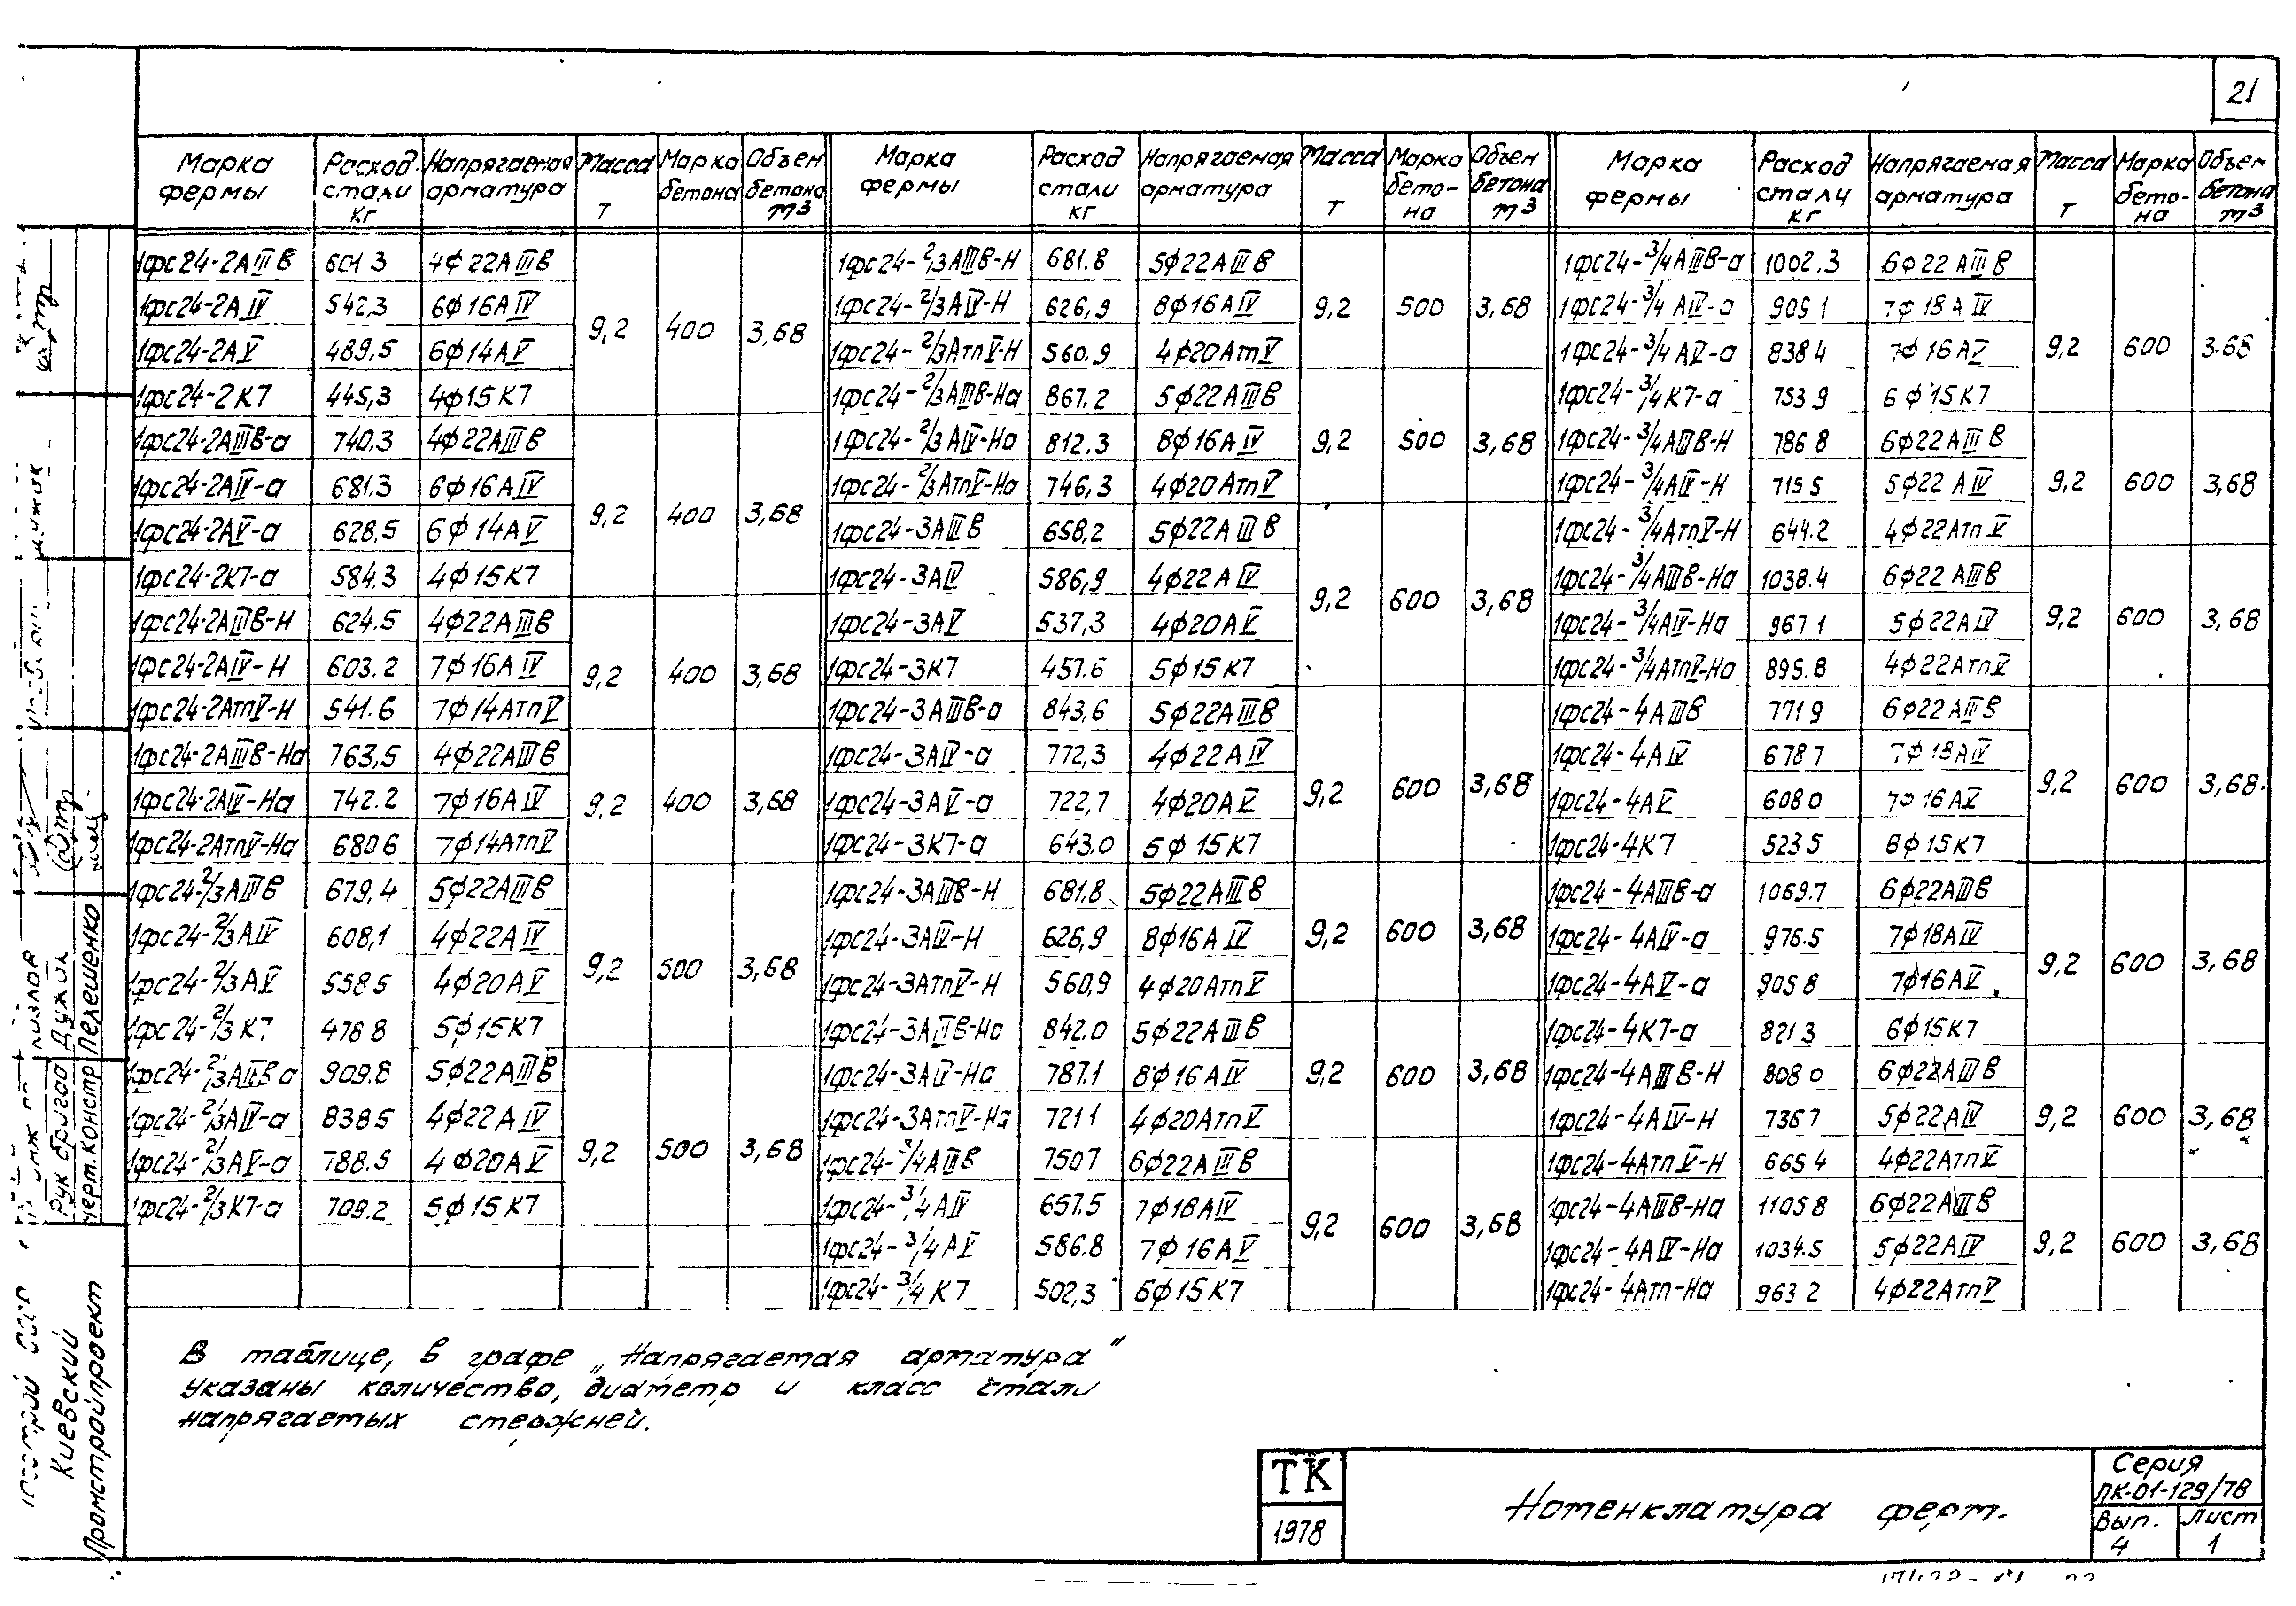 21
Марка фермы | Расход стали кг | Напрягаемая арматура | Масса т | Марка бетона | Объем бетона м3
1фс24-2АIIIв 601 3 4ф22АIIIв
1фс24-2АIV 542,3 6ф16АIV
1фс24-2АV 489,5 6ф14АV
1фс24-2К7 445,3 4ф15К7
9,2 400 3,68
1фс24-2АIIIв-а 740.3 4ф22АIIIв
1фс24-2АIV-а 681.3 6ф16АIV
1фс24-2АV-а 628,5 6ф14АV
1фс24-2К7-а 584.3 4ф15К7
9,2 400 3,68
1фс24-2АIIIв-Н 624.5 4ф22АIIIв
1фс24-2АIV-Н 603.2 7ф16АIV
1фс24-2АтпV-Н 541.6 7ф14АтпV
9,2 400 3,68
1фс24-2АIIIв-На 763,5 4ф22АIIIв
1фс24-2АIV-На 742.2 7ф16АIV
1фс24-2АтпV-На 680 6 7ф14АтпV
9,2 400 3,68
1фс24-2/3АIIIв 679,4 5ф22АIIIв
1фс24-2/3АIV 608,1 4ф22АIV
1фс24-2/3АV 558 5 4ф20АV
1фс24-2/3К7 478 8 5ф15К7
9,2 500 3,68
1фс24-2/3АIIIв а 909.8 5ф22АIIIв
1фс24-2/3АIV-а 838 5 4ф22АIV
1фс24-2/3АV-а 788.9 4ф20АV
1фс24-2/3К7-а 709.2 5ф15К7
9,2 500 3,68
Марка фермы | Расход стали кг | Напрягаемая арматура | Масса т | Марка бето-на | Объем бетона м3
1фс24-2/3АIIIв-Н 681.8 5ф22АIIIв
1фс24-2/3АIV-Н 626,9 8ф16АIV
1фс24-2/3АтпV-Н 560.9 4ф20АтпV
9,2 500 3,68
1фс24-2/3АIIIв-На 867.2 5ф22АIIIв
1фс24-2/3АIV-На 812.3 8ф16АIV
1фс24-2/3АтпV-На 746,3 4ф20АтпV
9,2 500 3,68
1фс24-3АIIIв 658,2 5ф22АIIIв
1фс24-3АIV 586,9 4ф22АIV
1фс24-3АV 537,3 4ф20АV
1фс24-3К7 457.6 5ф15К7
9,2 600 3,68
1фс24-3АIIIв-а 843,6 5ф22АIIIв
1фс24-3АIV-а 772,3 4ф22АIV
1фс24-3АV-а 722,7 4ф20АV
1фс24-3К7-а 643.0 5ф15К7
9,2 600 3,68
1фс24-3АIIIв-Н 681.8 5ф22АIIIв
1фс24-3АIV-Н 626,9 8ф16АIV
1фс24-3АтпV-Н 560,9 4ф20АтпV
9,2 600 3,68
1фс24-3АIIIв-На 842.0 5ф22АIIIв
1фс24-3АIV-На 787.1 8ф16АIV
1фс24-3АтпV-На 721 1 4ф20АтпV
9,2 600 3,68
1фс24-3/4АIIIв 750 7 6ф22АIIIв
1фс24-3/4АIV 657.5 7ф18АIV
1фс24-3/4АV 586.8 7ф16АV
1фс24-3/4К7 502,3 6ф15К7
9,2 600 3,68
Марка фермы | Расход стали кг | Напрягаемая арматура | Масса т | Марка бето-на | Объем бетона м3
1фс24-3/4АIIIв-а 1002.3 6ф22АIIIв
1фс24-3/4АIV-а 909 1 7ф18АIV
1фс24-3/4АV-а 838 4 7ф16АV
1фс24-3/4К7-а 753 9 6ф15К7
9,2 600 3.68
1фс24-3/4АIIIв-Н 786 8 6ф22АIIIв
1фс24-3/4АIV-Н 715 5 5ф22АIV
1фс24-3/4АтпV-Н 644.2 4ф22АтпV
9,2 600 3,68
1фс24-3/4АIIIв-На 1038.4 6ф22АIIIв
1фс24-3/4АIV-На 967 1 5ф22АIV
1фс24-3/4АтпV-На 895.8 4ф22АтпV
9,2 600 3,68
1фс24-4АIIIв 771 9 6ф22АIIIв
1фс24-4АIV 678 7 7ф18АIV
1фс24-4АV 608 0 7ф16АV
1фс24-4К7 523 5 6ф15К7
9,2 600 3,68
1фс24-4АIIIв-а 1069.7 6ф22АIIIв
1фс24-4АIV-а 976.5 7ф18АIV
1фс24-4АV-а 905 8 7ф16АV
1фс24-4К7-а 821 3 6ф15К7
9,2 600 3,68
1фс24-4АIIIв-Н 808 0 6ф22АIIIв
1фс24-4АIV-Н 736 7 5ф22АIV
1фс24-4АтпV-Н 665 4 4ф22АтпV
9,2 600 3,68
1фс24-4АIIIв-На 1105 8 6ф22АIIIв
1фс24-4АIV-На 1034.5 5ф22АIV
1фс24-4Атп-На 963 2 4ф22АтпV
9,2 600 3,68
В таблице, в графе „Напрягаемая арматура"
указаны количество, диаметр и класс стали
напрягаемых стержней.
ТК
1978
Номенклатура ферм.
Серия
ПК-01-129/78
Вып.
4
Лист
1
Киевский
Промстройпроект
Рук бригад Дужик
Черт.констр Пелешенко